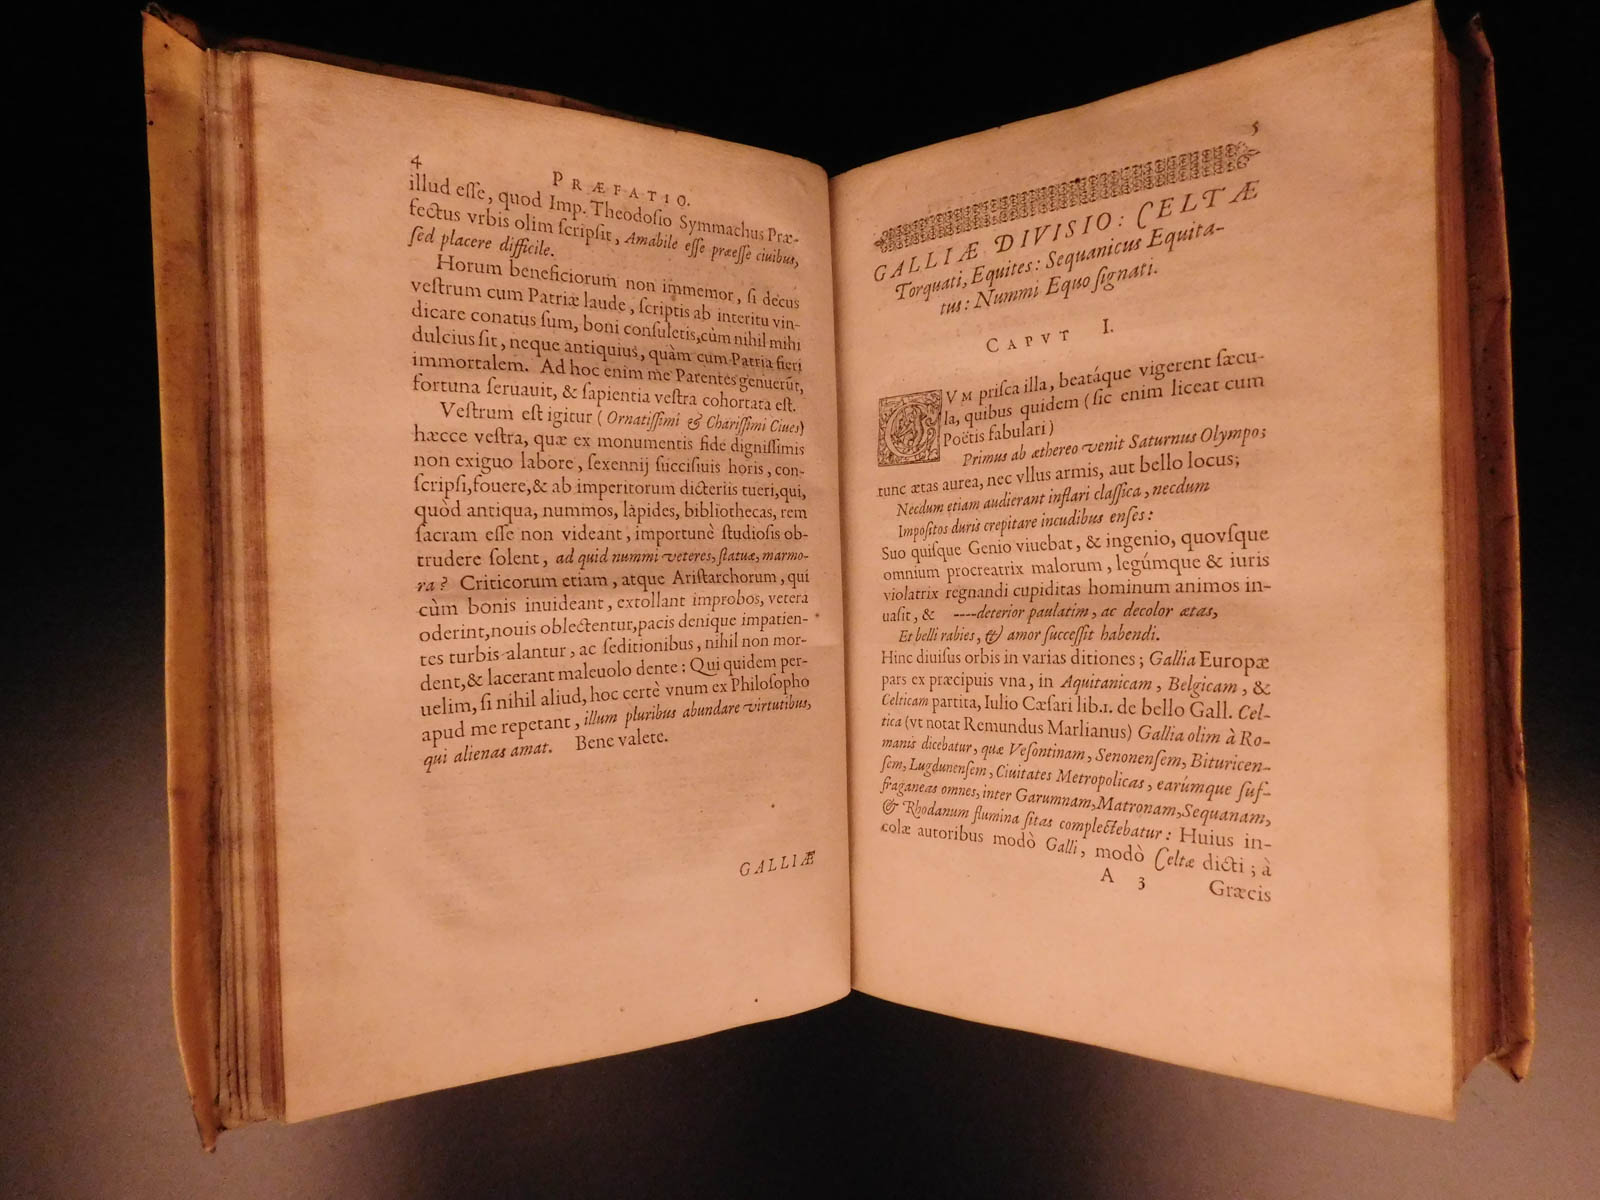 4
PRÆFATIO.
illud eſſe, quod Imp. Theodoſio Symmachus Præ-
fectus vrbis olim ſcripſit, Amabile eſſe præeſſe ciuibus,
ſed placere difficile.
Horum beneficiorum non immemor, ſi decus
veſtrum cum Patriæ laude, ſcriptis ab interitu vin-
dicare conatus ſum, boni conſuletis, cùm nihil mihi
dulcius ſit, neque antiquius, quàm cum Patria fieri
immortalem. Ad hoc enim me Parentes genuerūt,
fortuna ſeruauit, & ſapientia veſtra cohortata eſt.
Veſtrum eſt igitur (Ornatiſſimi & Chariſſimi Ciues)
hæcce veſtra, quæ ex monumentis fide digniſſimis
non exiguo labore, ſexennij ſucciſiuis horis, con-
ſcripſi, fouere, & ab imperitorum dicteriis tueri, qui,
quòd antiqua, nummos, lapides, bibliothecas, rem
ſacram eſſe non videant, importunè ſtudioſis ob-
trudere ſolent, ad quid nummi veteres, ſtatuæ, marmo-
ra? Criticorum etiam, atque Ariſtarchorum, qui
cùm bonis inuideant, extollant improbos, vetera
oderint, nouis oblectentur, pacis denique impatien-
tes turbis alantur, ac ſeditionibus, nihil non mor-
dent, & lacerant maleuolo dente: Qui quidem per-
uelim, ſi nihil aliud, hoc certè vnum ex Philoſopho
apud me repetant, illum pluribus abundare virtutibus,
qui alienas amat. Bene valete.
GALLIÆ
5
GALLIÆ DIVISIO: CELTÆ
Torquati, Equites: Sequanicus Equita-
tus: Nummi Equo ſignati.
CAPVT I.
CVM priſca illa, beatáque vigerent ſæcu-
la, quibus quidem (ſic enim liceat cum
Poëtis fabulari)
Primus ab æthereo venit Saturnus Olympo;
tunc ætas aurea, nec vllus armis, aut bello locus;
Necdum etiam audierant inflari claſſica, necdum
Impoſitos duris crepitare incudibus enſes:
Suo quiſque Genio viuebat, & ingenio, quovſque
omnium procreatrix malorum, legúmque & iuris
violatrix regnandi cupiditas hominum animos in-
uaſit, & ----deterior paulatim, ac decolor ætas,
Et belli rabies, & amor ſucceſſit habendi.
Hinc diuiſus orbis in varias ditiones; Gallia Europæ
pars ex præcipuis vna, in Aquitanicam, Belgicam, &
Celticam partita, Iulio Cæſari lib.1. de bello Gall. Cel-
tica (vt notat Remundus Marlianus) Gallia olim à Ro-
manis dicebatur, quæ Veſontinam, Senonenſem, Bituricen-
ſem, Lugdunenſem, Ciuitates Metropolicas, earúmque ſuf-
fraganeas omnes, inter Garumnam, Matronam, Sequanam,
& Rhodanum flumina ſitas complectebatur: Huius in-
colæ autoribus modò Galli, modò Celtæ dicti; à
A 3
Græcis